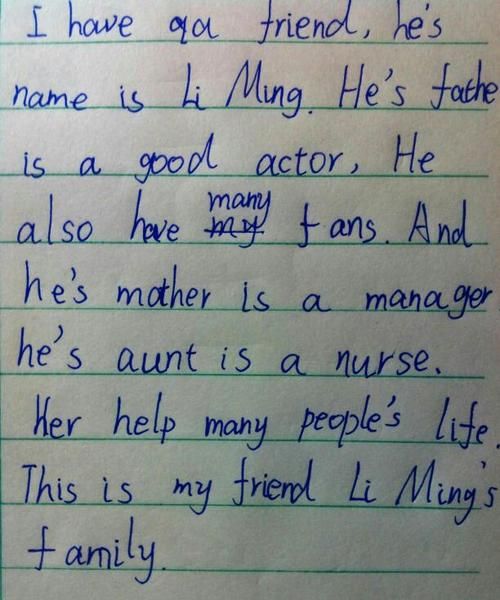 I have a friend, he's
name is Li Ming. He's fathe
is a good actor, He
also have many fans. And
he's mother is a manager
he's aunt is a nurse.
Her help many people's life.
This is my friend Li Ming's
family.